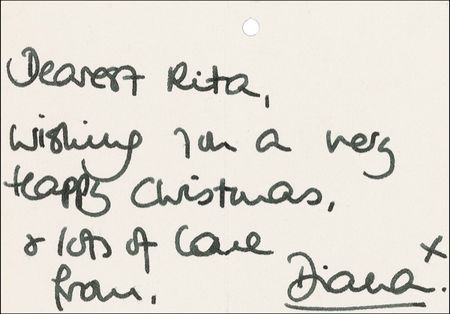 Dearest Rita,
Wishing you a very
Happy Christmas,
& lots of love
from.
Diana x